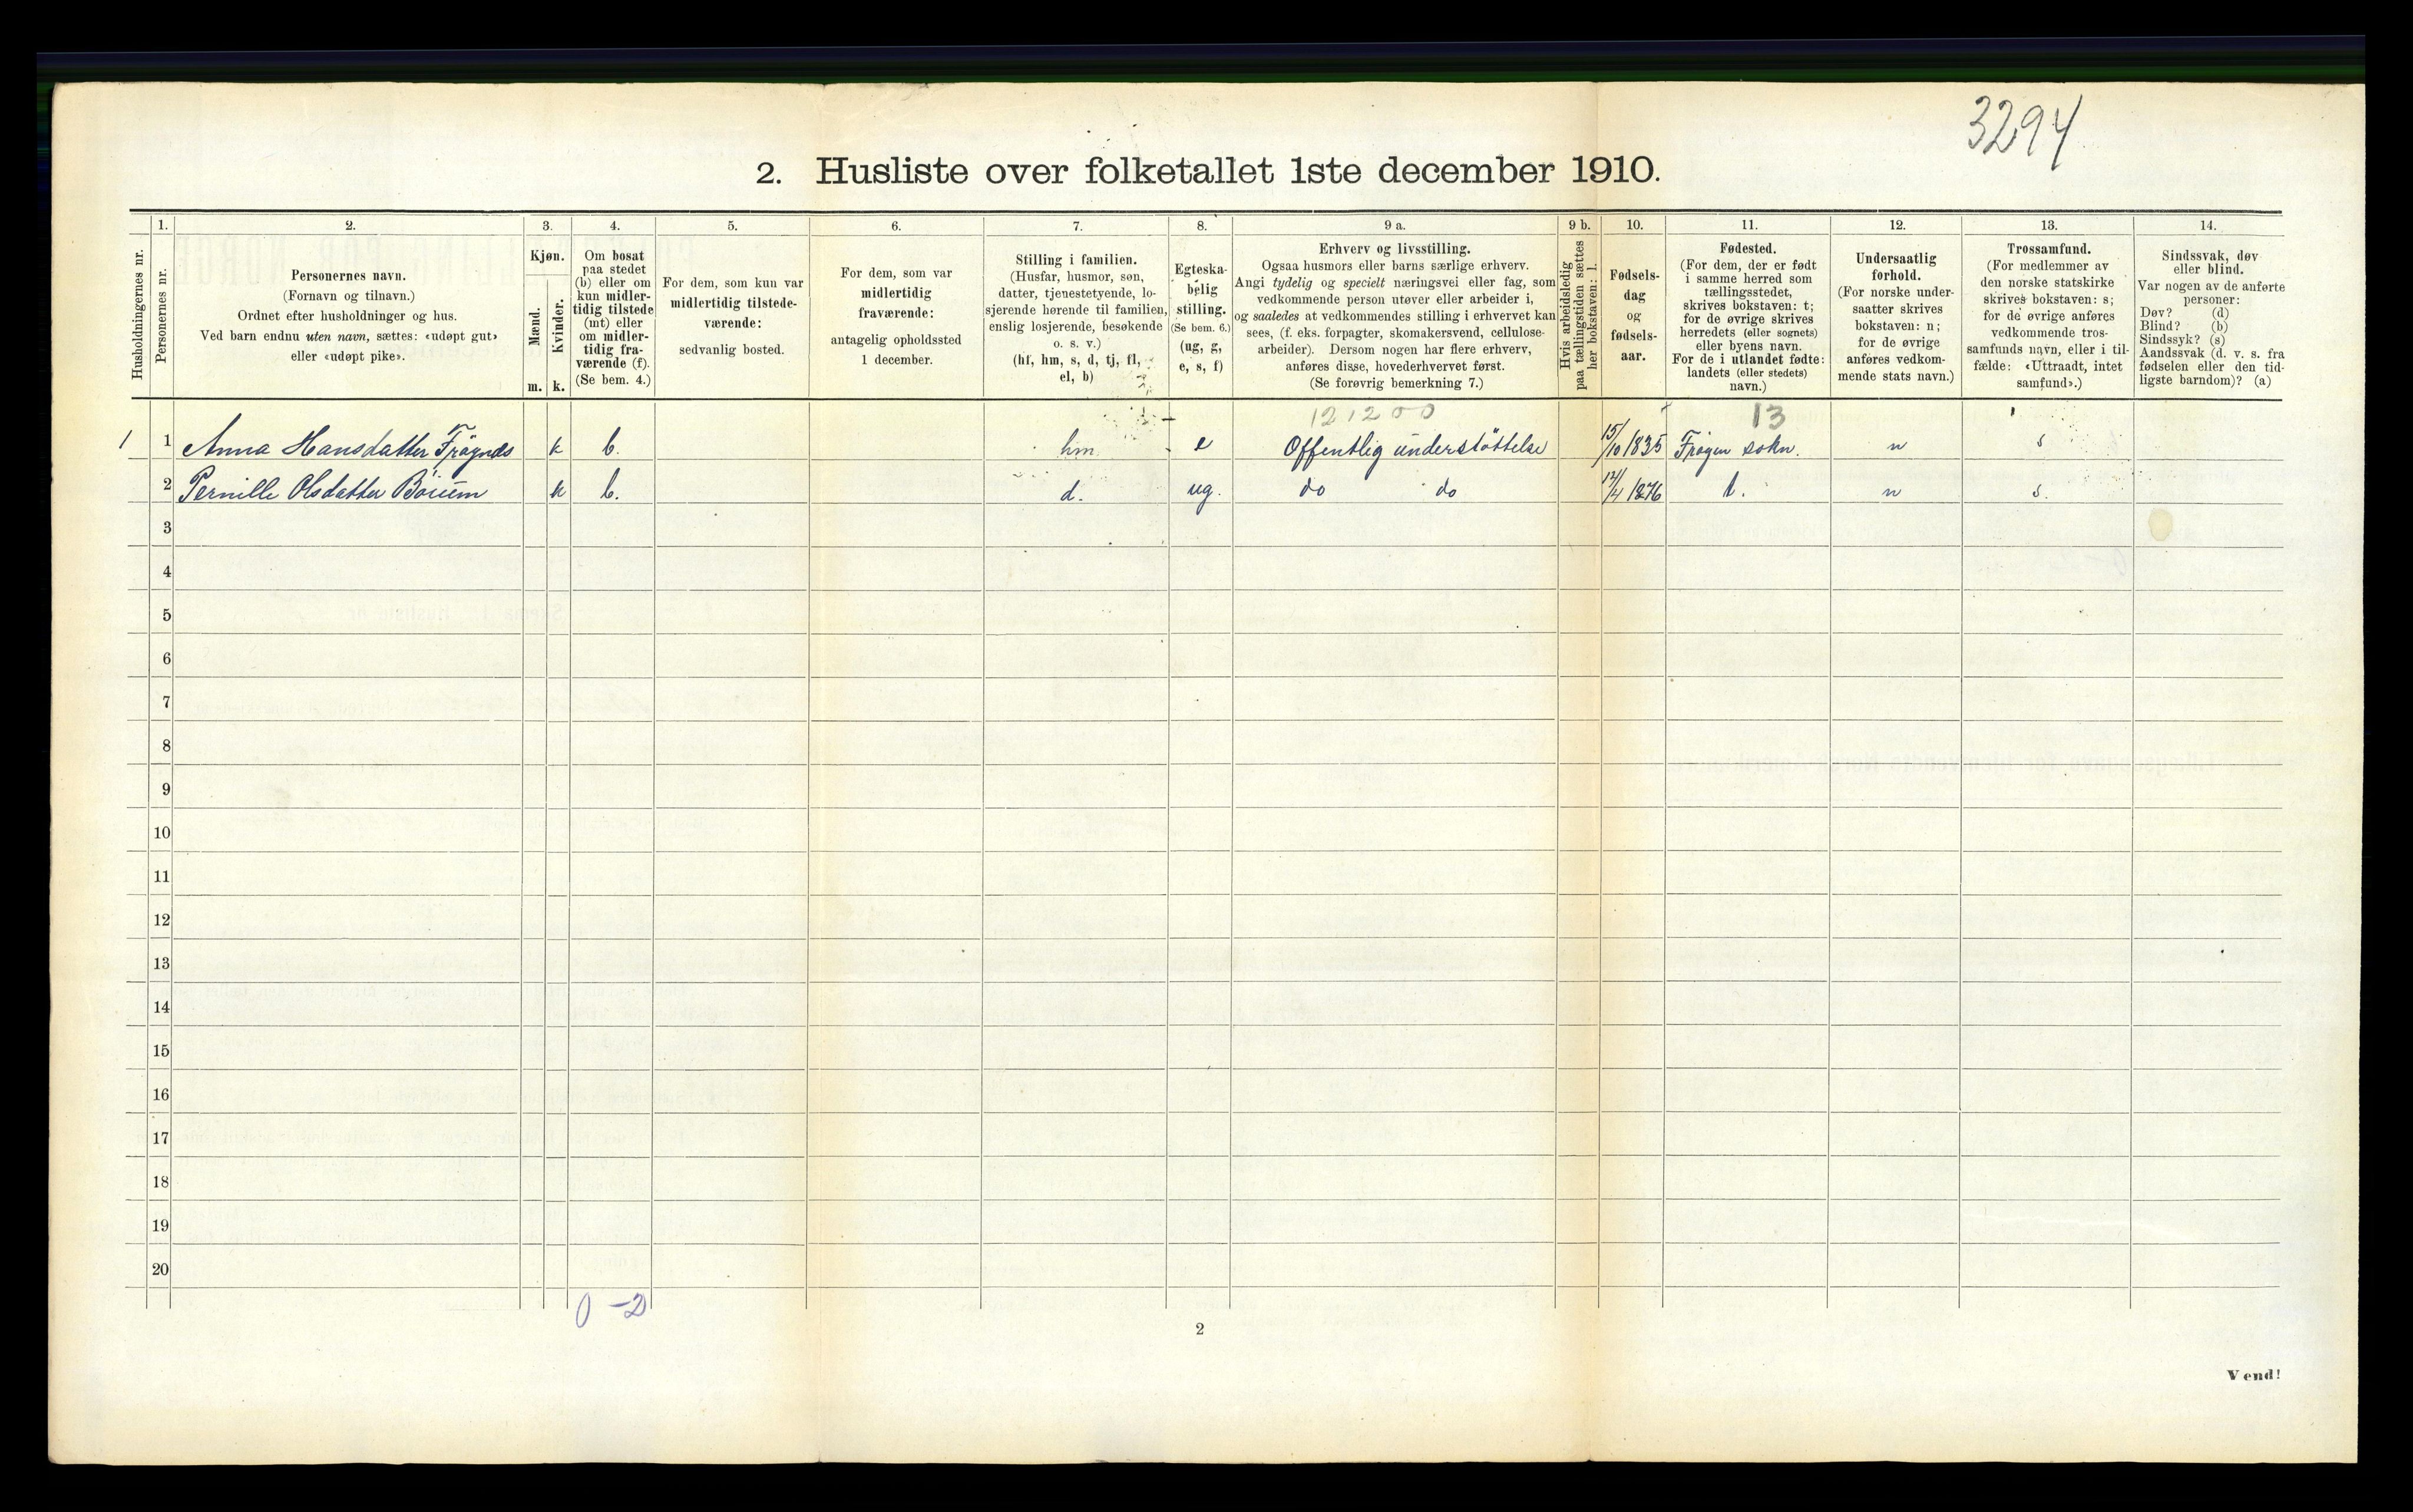 3294
2. Husliste over folketallet 1ste december 1910.
Husholdningernes nr.
1.
Personernes nr.
2.
Personernes navn.
(Fornavn og tilnavn.)
Ordnet efter husholdninger og hus.
Ved barn endnu uten navn, sættes: «udøpt gut»
eller «udøpt pike».
3.
Kjøn.
Mænd.
m.
Kvinder.
k.
4.
Om bosat
paa stedet
(b) eller om
kun midler-
tidig tilstede
(mt) eller
om midler-
tidig fra-
værende (f).
(Se bem. 4.)
5.
For dem, som kun var
midlertidig tilstede-
værende:
sedvanlig bosted.
6.
For dem, som var
midlertidig
fraværende:
antagelig opholdssted
1 december.
7.
Stilling i familien.
(Husfar, husmor, søn,
datter, tjenestetyende, lo-
sjerende hørende til familien,
enslig losjerende, besøkende
o. s. v.)
(hf, hm, s, d, tj, fl,
el, b)
8.
Egteska-
belig
stilling.
(Se bem. 6.)
(ug, g,
e, s, f)
9 a.
Erhverv og livsstilling.
Ogsaa husmors eller barns særlige erhverv.
Angi tydelig og specielt næringsvei eller fag, som
vedkommende person utøver eller arbeider i,
og saaledes at vedkommendes stilling i erhvervet kan
sees, (f. eks. forpagter, skomakersvend, cellulose-
arbeider). Dersom nogen har flere erhverv,
anføres disse, hovederhvervet først.
(Se forøvrig bemerkning 7.)
9 b.
Hvis arbeidsledig
paa tællingstiden sættes
her bokstaven: l.
10.
Fødsels-
dag
og
fødsels-
aar.
11.
Fødested.
(For dem, der er født
i samme herred som
tællingsstedet,
skrives bokstaven: t;
for de øvrige skrives
herredets (eller sognets)
eller byens navn.
For de i utlandet fødte:
landets (eller stedets)
navn.)
12.
Undersaatlig
forhold.
(For norske under-
saatter skrives
bokstaven: n;
for de øvrige
anføres vedkom-
mende stats navn.)
13.
Trossamfund.
(For medlemmer av
den norske statskirke
skrives bokstaven: s;
for de øvrige anføres
vedkommende tros-
samfunds navn, eller i til-
fælde: «Uttraadt, intet
samfund».)
14.
Sindssvak, døv
eller blind.
Var nogen av de anførte
personer:
Døv? (d)
Blind? (b)
Sindssyk? (s)
Aandssvak (d. v. s. fra
fødselen eller den tid-
ligste barndom)? (a)
121200 13
1 1 Anna Hansdatter Frøgnes k b. hm e Offentlig understøttelse 15/10 1835 Frøgn sokn. n s
2 Pernille Olsdatter Böium k b. d. ug. do do 12/4 1876 t. n s.
3
4
5
6
7
8
9
10
11
12
13
14
15
16
17
18
19
20
0 - 2
2
Vend!